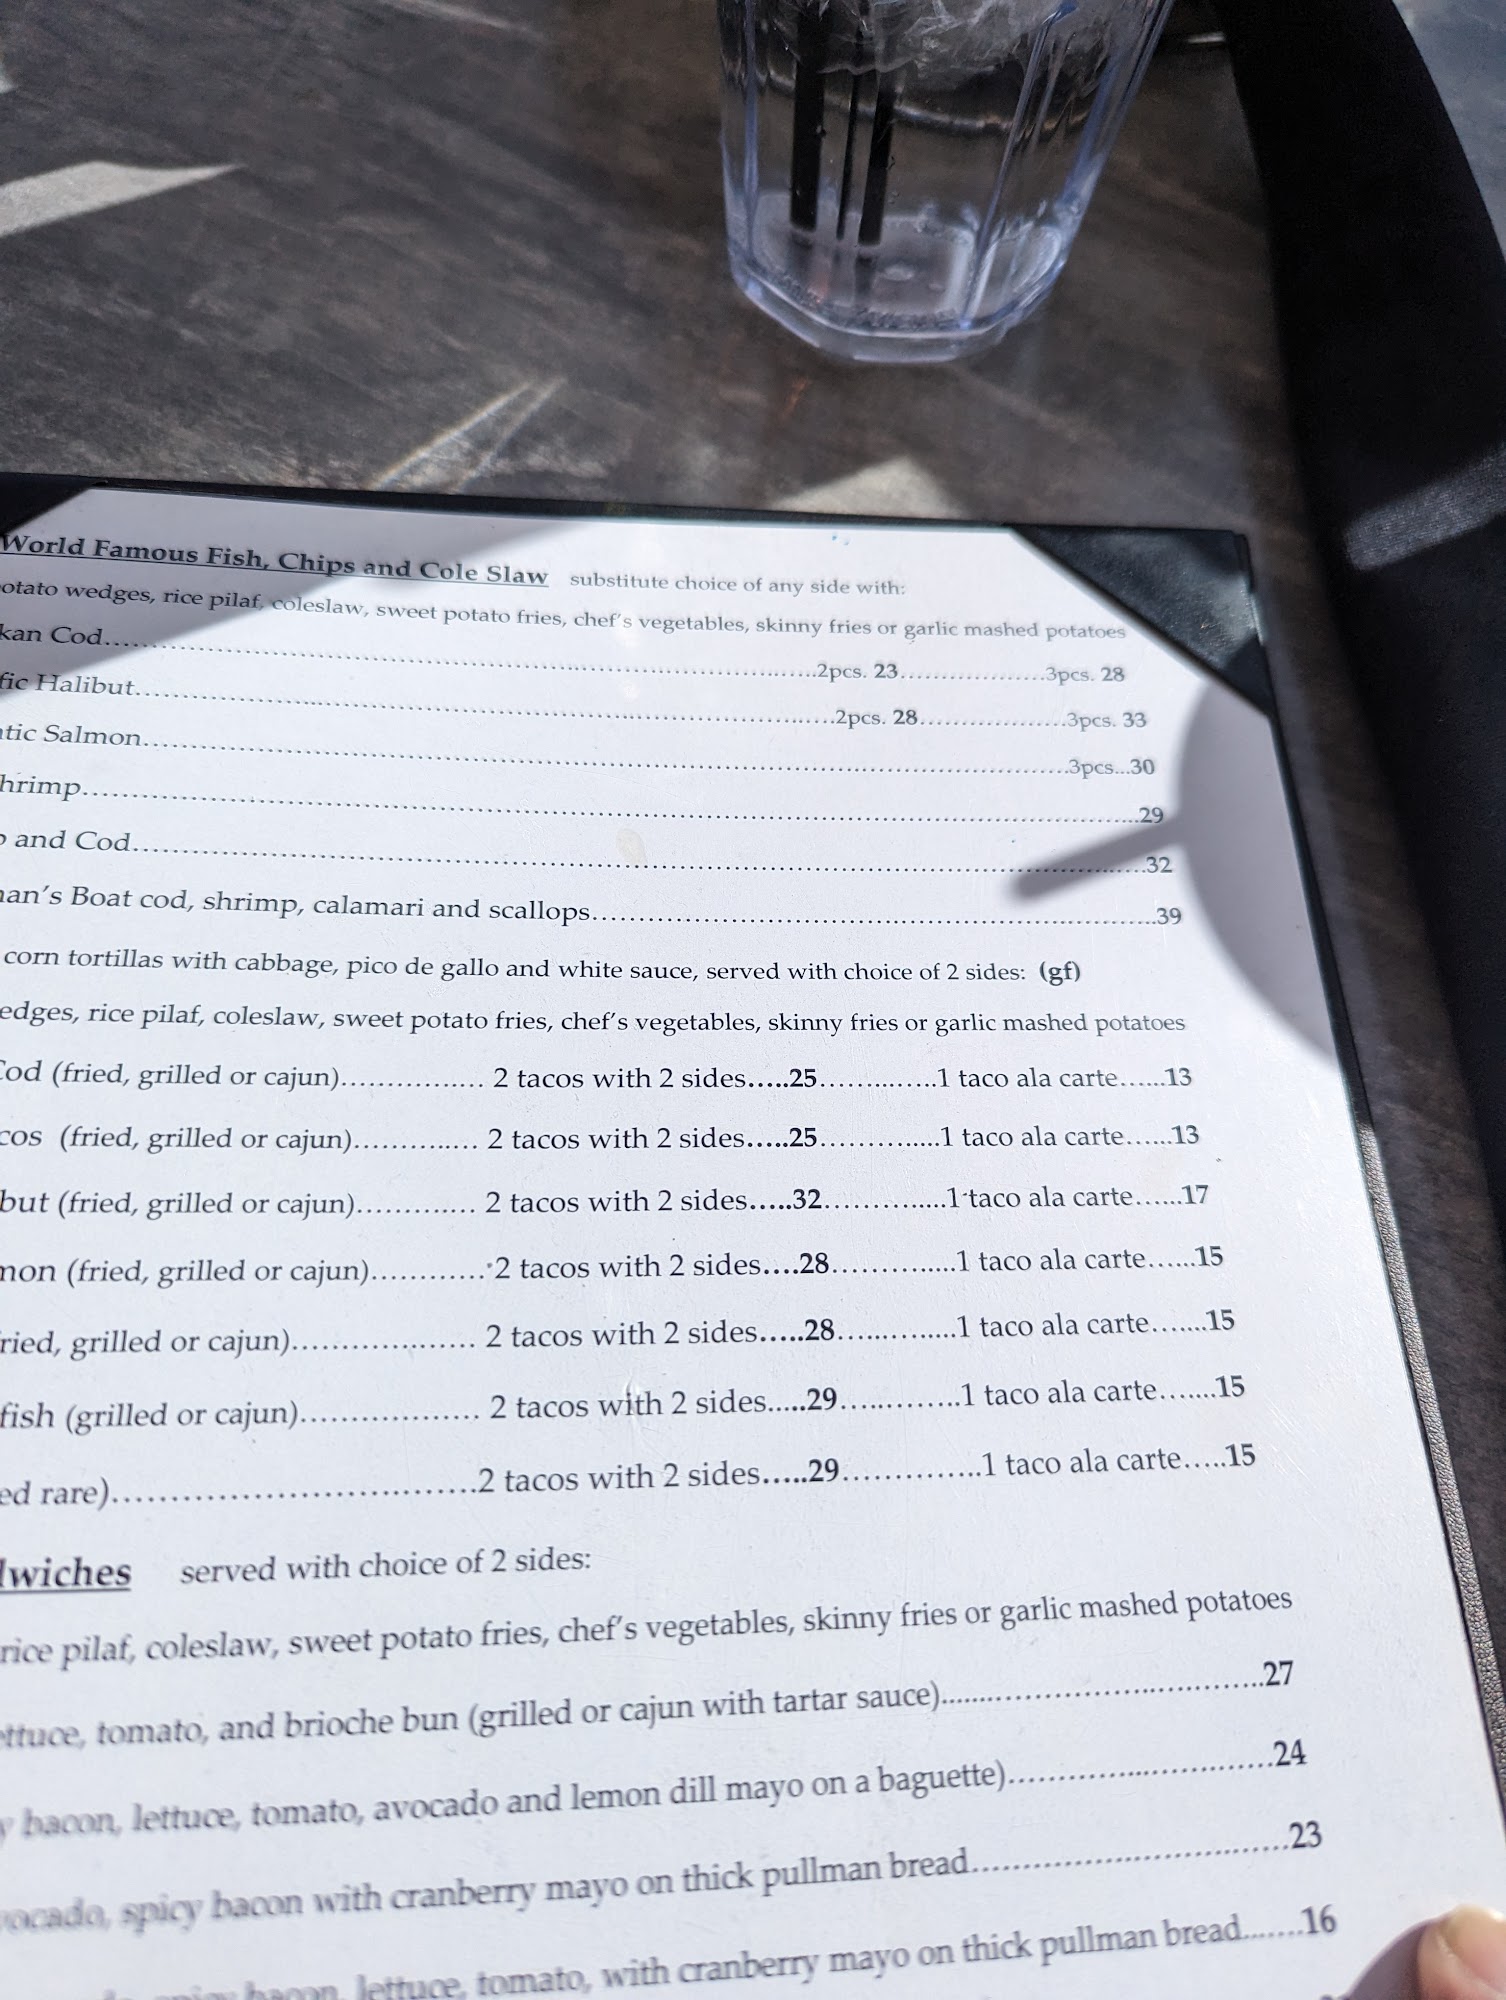 World Famous Fish, Chips and Cole Slaw substitute choice of any side with:
otato wedges, rice pilaf, coleslaw, sweet potato fries, chef's vegetables, skinny fries or garlic mashed potatoes
kan Cod.....2pcs. 23.....3pcs. 28
fic Halibut.....2pcs. 28.....3pcs. 33
ntic Salmon.....3pcs...30
hrimp.....29
and Cod.....32
an's Boat cod, shrimp, calamari and scallops.....39
corn tortillas with cabbage, pico de gallo and white sauce, served with choice of 2 sides: (gf)
edges, rice pilaf, coleslaw, sweet potato fries, chef's vegetables, skinny fries or garlic mashed potatoes
Cod (fried, grilled or cajun)..... 2 tacos with 2 sides.....25.....1 taco ala carte......13
cos (fried, grilled or cajun)..... 2 tacos with 2 sides.....25.....1 taco ala carte......13
but (fried, grilled or cajun)..... 2 tacos with 2 sides.....32.....1 taco ala carte......17
mon (fried, grilled or cajun)..... 2 tacos with 2 sides....28.....1 taco ala carte......15
ried, grilled or cajun)..... 2 tacos with 2 sides.....28.....1 taco ala carte.......15
fish (grilled or cajun)..... 2 tacos with 2 sides.....29.....1 taco ala carte.......15
ed rare).....2 tacos with 2 sides.....29.....1 taco ala carte.....15
wiches served with choice of 2 sides:
rice pilaf, coleslaw, sweet potato fries, chef's vegetables, skinny fries or garlic mashed potatoes
ettuce, tomato, and brioche bun (grilled or cajun with tartar sauce).....27
y bacon, lettuce, tomato, avocado and lemon dill mayo on a baguette).....24
vocado, spicy bacon with cranberry mayo on thick pullman bread.....23
spicy bacon, lettuce, tomato, with cranberry mayo on thick pullman bread.......16